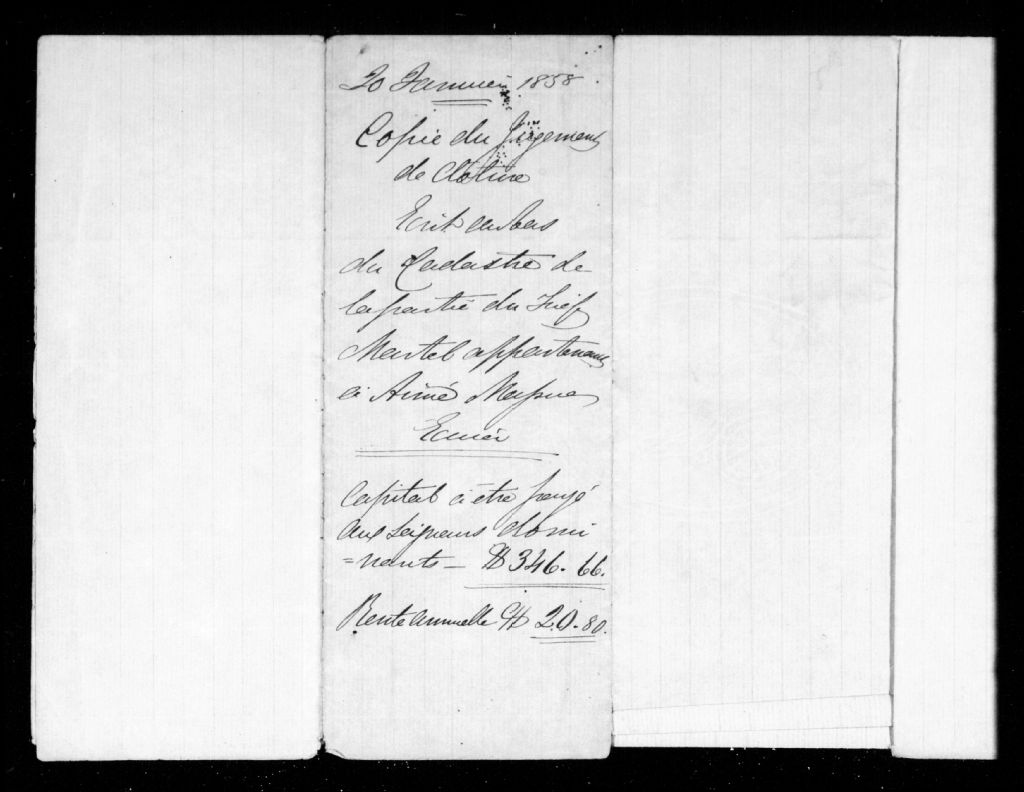 20 Janvier 1858
Copie du Jugement
de Clôture
Ecrit au bas
du Cadastre de
la partie du Fief
Martel appartenant
à Aimé Massue
Ecuier
Capital à être payé
aux Seigneurs domi
=nants — $346.66.
Rente annuelle $ 20.80.